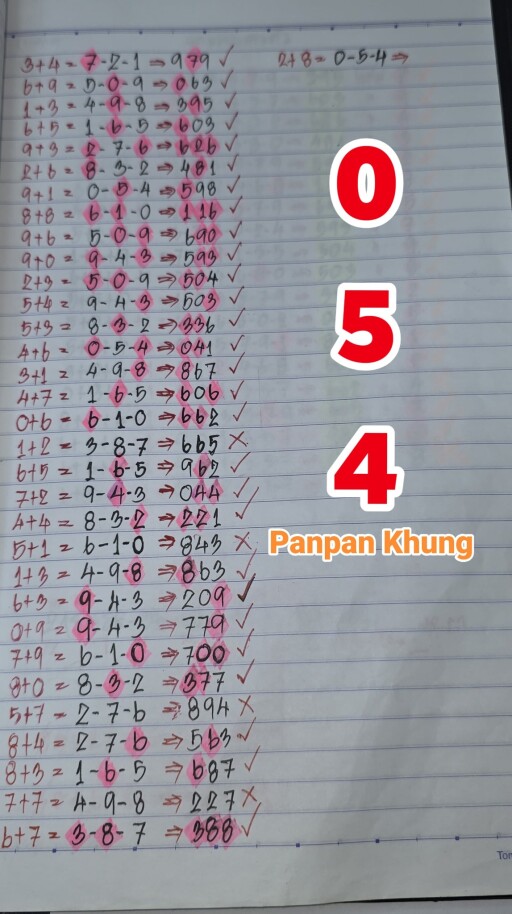 3+4 = 7-2-1 ⇒ 979 ✓
6+9 = 5-0-9 ⇒ 063 ✓
1+3 = 4-9-8 ⇒ 395 ✓
6+5 = 1-6-5 ⇒ 603 ✓
9+3 = 2-7-6 ⇒ 626 ✓
2+6 = 8-3-2 ⇒ 481 ✓
9+1 = 0-5-4 ⇒ 598 ✓
8+8 = 6-1-0 ⇒ 116 ✓
9+6 = 5-0-9 ⇒ 690 ✓
9+0 = 9-4-3 ⇒ 593 ✓
2+3 = 5-0-9 ⇒ 504 ✓
5+4 = 9-4-3 ⇒ 503 ✓
5+3 = 8-3-2 ⇒ 336 ✓
4+6 = 0-5-4 ⇒ 041 ✓
3+1 = 4-9-8 ⇒ 867 ✓
4+7 = 1-6-5 ⇒ 606 ✓
0+6 = 6-1-0 ⇒ 662 ✓
1+2 = 3-8-7 ⇒ 665 ×
6+5 = 1-6-5 ⇒ 962 ✓
7+2 = 9-4-3 ⇒ 044 ✓
4+4 = 8-3-2 ⇒ 221 ✓
5+1 = 6-1-0 ⇒ 843 ×
1+3 = 4-9-8 ⇒ 863 ✓
6+3 = 9-4-3 ⇒ 209 ✓
0+9 = 9-4-3 ⇒ 779 ✓
7+9 = 6-1-0 ⇒ 700 ✓
8+0 = 8-3-2 ⇒ 377 ✓
5+7 = 2-7-6 ⇒ 894 ×
8+4 = 2-7-6 ⇒ 563 ✓
8+3 = 1-6-5 ⇒ 687 ✓
7+7 = 4-9-8 ⇒ 227 ×
6+7 = 3-8-7 ⇒ 388 ✓
2+8 = 0-5-4 ⇒
0
5
4
Panpan Khung